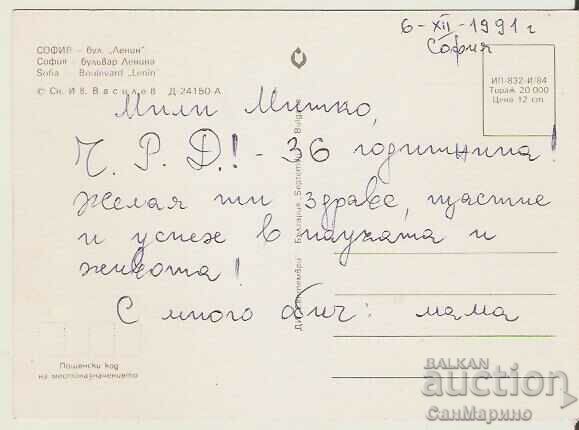 6-XII-1991 г
София
СОФИЯ - бул. „Ленин"
София - бульвар Ленина
Sofia - Boulevard „Lenin"
© Сн. И в. В а с и л е в Д-24150-А
ИП-832-И/84
Тираж 20 000
Цена 12 cm
Мили Митко,
Ч. Р. Д.! - 36 годишнина!
Желая ти здраве, щастие
и успех в науката и
живота!
С много обич: мама
България Septemvri Bulgaria
Пощенски код
на местоназначението
BALKAN
auction
СанМарино